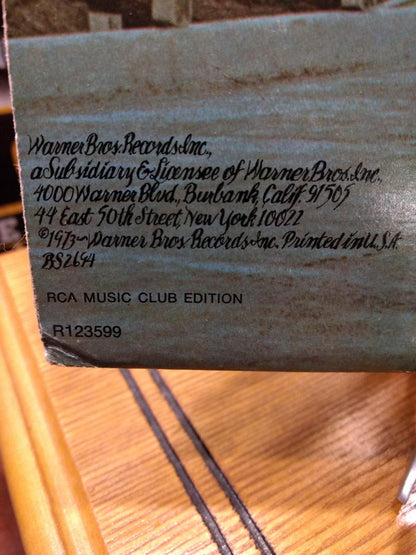 Warner Bros. Records, Inc.,
a Subsidiary & Licensee of Warner Bros., Inc.,
4000 Warner Blvd., Burbank, Calif. 91505
44 East 50th Street, New York 10022
©1973~Warner Bros. Records, Inc. Printed in U.S.A.
BS2694
RCA MUSIC CLUB EDITION
R123599